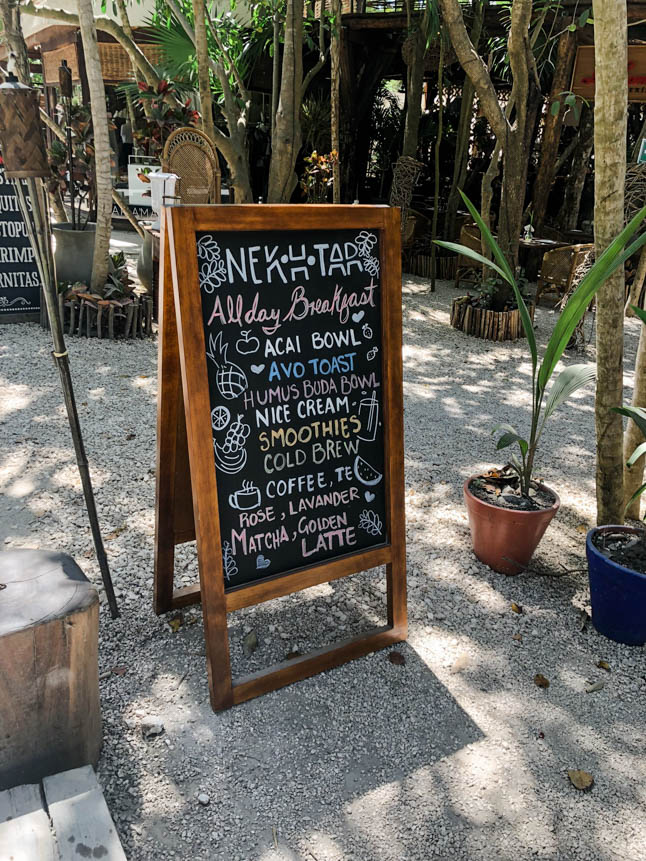 NEK·H·TAR
All day Breakfast
ACAI BOWL
AVO TOAST
HUMUS BUDA BOWL
NICE CREAM.
SMOOTHIES
COLD BREW
COFFEE, TE
ROSE, LAVANDER
MATCHA, GOLDEN
LATTE